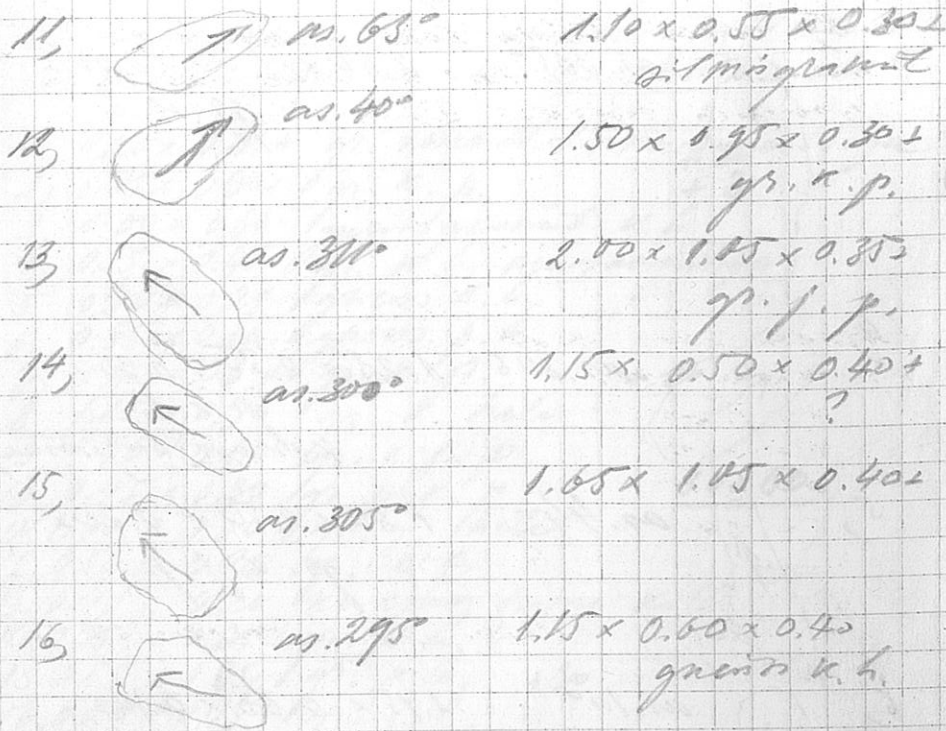 11, as. 65° 1.10 x 0.55 x 0.30±
silmisgraniit
12, as. 40° 1.50 x 0.95 x 0.30±
gr. k. p.
13, as. 311° 2.00 x 1.05 x 0.35±
gr. j. p.
14, as. 300° 1.15 x 0.50 x 0.40±
?
15, as. 305° 1.65 x 1.05 x 0.40±
16, as. 295° 1.15 x 0.60 x 0.40
gneiss k. h.